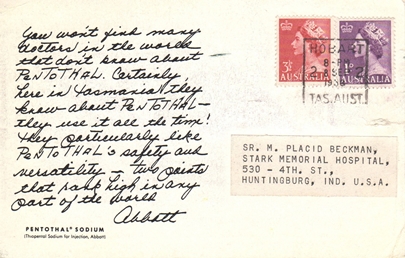 You won't find many
doctors in the world
that don't know about
PENTOTHAL. Certainly,
here in Tasmania they
know about PENTOTHAL—
they use it all the time!
They particularly like
PENTOTHAL's safety and
versatility — two points
that rank high in any
part of the world
Abbott
PENTOTHAL® SODIUM
(Thiopental Sodium for Injection, Abbott)
AUSTRALIA
AUSTRALIA
HOBART
TAS. AUST.
SR. M. PLACID BECKMAN,
STARK MEMORIAL HOSPITAL,
530 - 4TH. ST.,
HUNTINGBURG, IND. U.S.A.